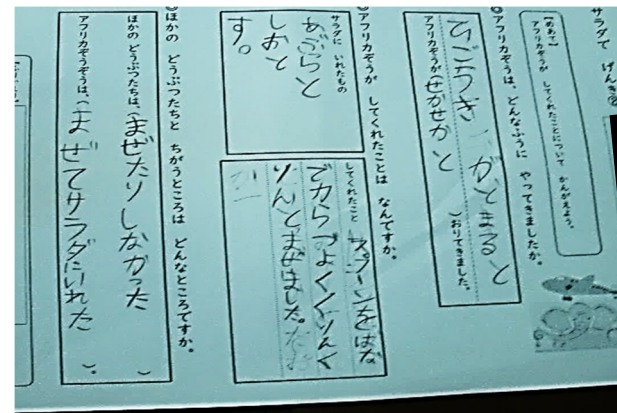 サラダで げんき②
【めあて】
アフリカぞうが してくれたことについて かんがえよう。
◎アフリカぞうは、どんなふうに やってきましたか。
ひこうき がとまると
アフリカぞうが(せかせかと )おりてきました。
◎アフリカぞうが してくれたことは なんですか。
サラダに いれたもの
あぶらと
しおと
す。
してくれたこと
スプーンをはな
でからつよくくりんく
りんとまぜました。
◎ほかの どうぶつたちと ちがうところは どんなところですか。
ほかの どうぶつたちは、(まぜたりしなかった )
アフリカぞうは、(まぜてサラダにいれた )。